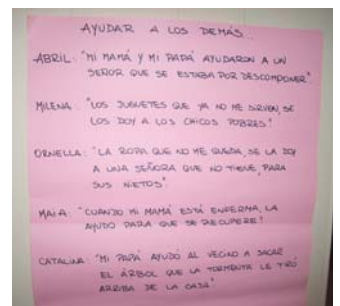 AYUDAR A LOS DEMÁS...
ABRIL: "MI MAMÁ Y MI PAPÁ AYUDARON A UN
SEÑOR QUE SE ESTABA POR DESCOMPONER".
MILENA: "LOS JUGUETES QUE YA NO ME SIRVEN, SE
LOS DOY A LOS CHICOS POBRES!
ORNELLA: "LA ROPA QUE NO ME QUEDA, SE LA DOY
A UNA SEÑORA QUE NO TIENE, PARA
SUS NIETOS".
MAIA: "CUANDO MI MAMÁ ESTÁ ENFERMA, LA
AYUDO PARA QUE SE RECUPERE!
CATALINA: "MI PAPÁ AYUDÓ AL VECINO A SACAR
EL ÁRBOL QUE LA TORMENTA LE TIRÓ
ARRIBA DE LA CASA"